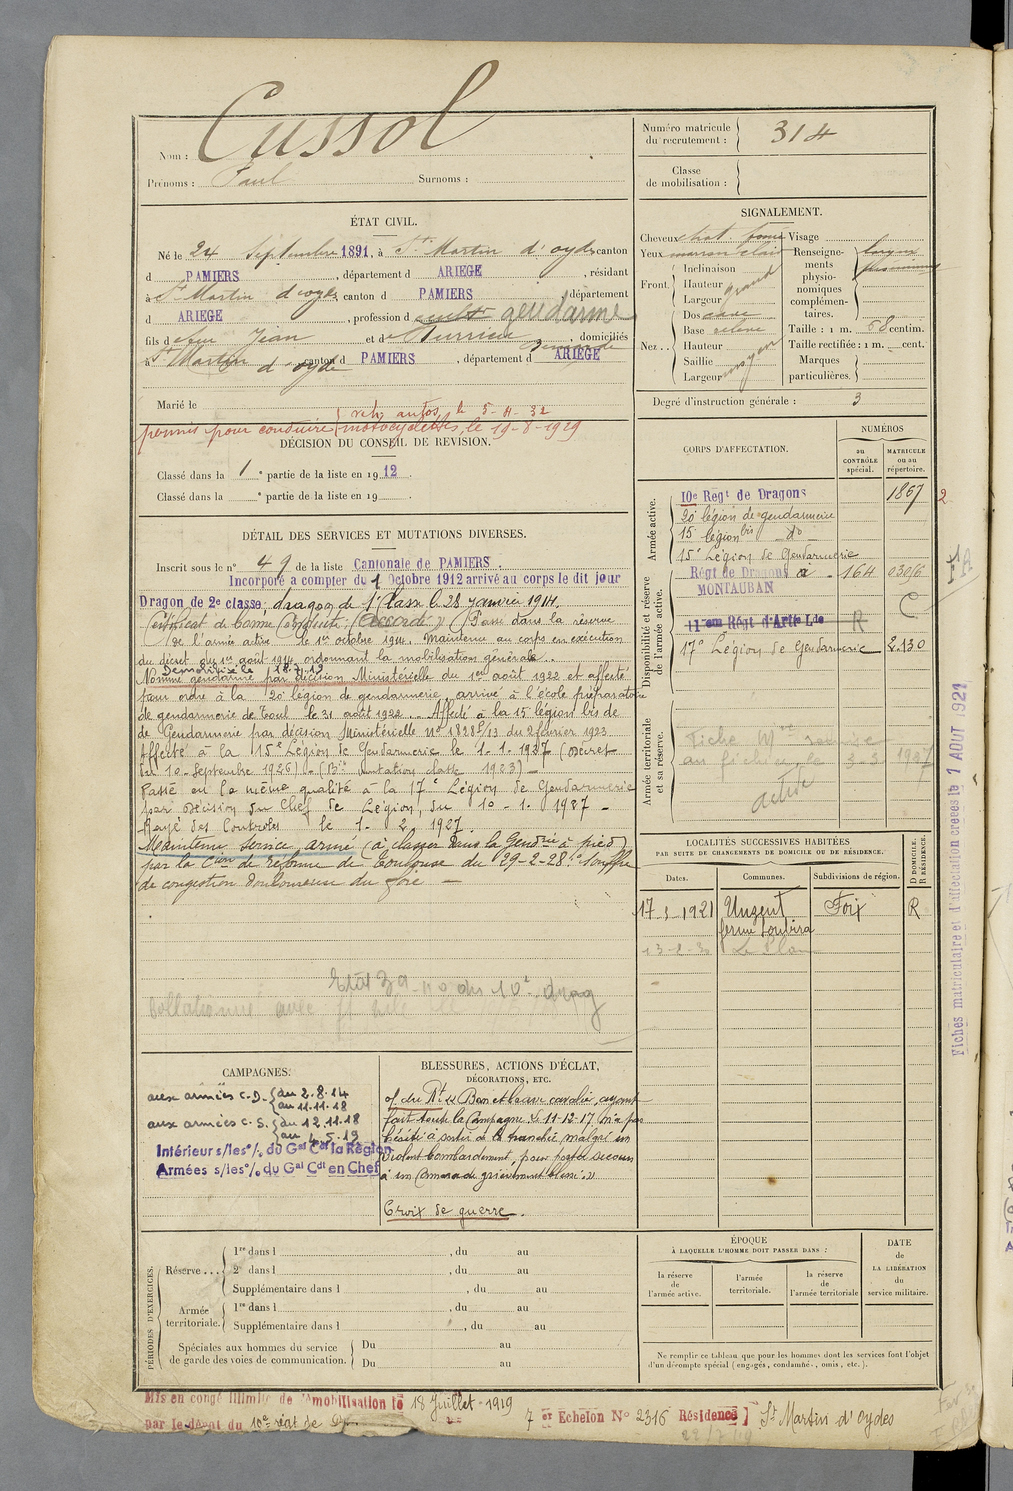 Nom : Cussol
Prénoms : Paul Surnoms :
Numéro matricule du recrutement : 314
Classe de mobilisation :
ÉTAT CIVIL.
Né le 24 Septembre 1891, à St Martin d'oydes canton
d PAMIERS, département d ARIEGE, résidant
à St Martin d'oydes canton d PAMIERS département
d ARIEGE, profession d gendarme
fils d feu Jean et d domiciliés
à St Martin d'oydes canton d PAMIERS, département d ARIEGE
Marié le
autos, le 5-11-32
permis pour conduire motocyclettes, le 19-8-1929
SIGNALEMENT.
Cheveux chat foncé Visage
Yeux marron clair
Front. Inclinaison
Hauteur grand
Largeur
Nez.. Dos cave
Base relevé
Hauteur
Saillie
Largeur moyen
Renseignements physionomiques complémentaires.
Taille : 1 m. 68 centim.
Taille rectifiée : 1 m. cent.
Marques particulières.
Degré d'instruction générale : 3
DÉCISION DU CONSEIL DE REVISION.
Classé dans la 1e partie de la liste en 1912.
Classé dans la e partie de la liste en 19 .
DÉTAIL DES SERVICES ET MUTATIONS DIVERSES.
Inscrit sous le n° 49 de la liste Cantonale de PAMIERS.
Incorporé a compter du 1 Octobre 1912 arrivé au corps le dit jour
Dragon de 2e classe, dragon de 1e classe le 28 janvier 1914.
Certificat de bonne conduite : "Accordé" Passé dans la réserve
de l'armée active le 1er octobre 1914. Maintenu au corps en exécution
du décret du 1er août 1914 ordonnant la mobilisation générale.
Démobilisé le 18.7.19
Nommé gendarme par décision Ministérielle du 1er août 1922 et affecté
pour ordre à la 20e légion de gendarmerie, arrivé à l'école préparatoire
de gendarmerie de Toul le 31 août 1922. Affecté à la 15e légion bis de
de Gendarmerie par décision Ministérielle N° 1828/13 du 2 février 1923
Affecté à la 15e Légion de Gendarmerie le 1-1-1927 (Décret
du 10 Septembre 1926) - mutation classe 1923) -
Passé en la même qualité à la 17e Légion de Gendarmerie
par décision du Chef de Légion, du 10-1-1927 -
Rayé des Controles le 1-2-1927.
Maintenu service armé (à classer dans la Gendrie à pied)
par la Con de réforme de Toulouse du 29-2-28
de congestion douloureuse du foie —
10e drag
CORPS D'AFFECTATION. NUMÉROS
au CONTRÔLE spécial. MATRICULE ou au répertoire.
Armée active.
10e Régt de Dragons 1867
20e légion de gendarmerie
15e légion bis do
15e Légion de Gendarmerie
Disponibilité et réserve de l'armée active.
Régt de Dragons à MONTAUBAN 164
11em Régt d'Artie Lde R
17e Légion de Gendarmerie 2.130
Armée territoriale et sa réserve.
active
LOCALITÉS SUCCESSIVES HABITÉES
PAR SUITE DE CHANGEMENTS DE DOMICILE OU DE RÉSIDENCE.
Dates. Communes. Subdivisions de région. D DOMICILE. R RÉSIDENCE.
1921 Unzent Foix R
ferme
Fiches matriculaire et d'affectation creees le 1 AOUT 1921
CAMPAGNES.
aux armées C.D. du 2.8.14
au 11.11.18
aux armées C.S. du 12.11.18
au 4.5.19
Intérieur s/les o/. du Gal Cdt la Région
Armées s/les o/. du Gal Cdt en Chef
BLESSURES, ACTIONS D'ÉCLAT,
DÉCORATIONS, ETC.
O/ du Rt "Bon et brave cavalier, ayant
fait toute la Campagne. Le 11-12-17 n'a pas
hésité à sortir de la tranchée malgré un
violent bombardement, pour porter secours
à un Camarade grièvement blessé."
Croix de guerre.
PÉRIODES D'EXERCICES.
Réserve ... 1re dans l , du au
2e dans l , du au
Supplémentaire dans l , du au
Armée territoriale. 1re dans l , du au
Supplémentaire dans l , du au
Spéciales aux hommes du service de garde des voies de communication. Du au
Du au
ÉPOQUE
À LAQUELLE L'HOMME DOIT PASSER DANS :
la réserve de l'armée active. l'armée territoriale. la réserve de l'armée territoriale
DATE de LA LIBÉRATION du service militaire.
Ne remplir ce tableau que pour les hommes dont les services font l'objet
d'un décompte spécial (engagés, condamnés, omis, etc.).
Mis en congé illimité de démobilisation le 18 Juillet 1919
par le dépôt du 10e régt de
7 er Echelon N° 2316 Résidence St Martin d'Oydes